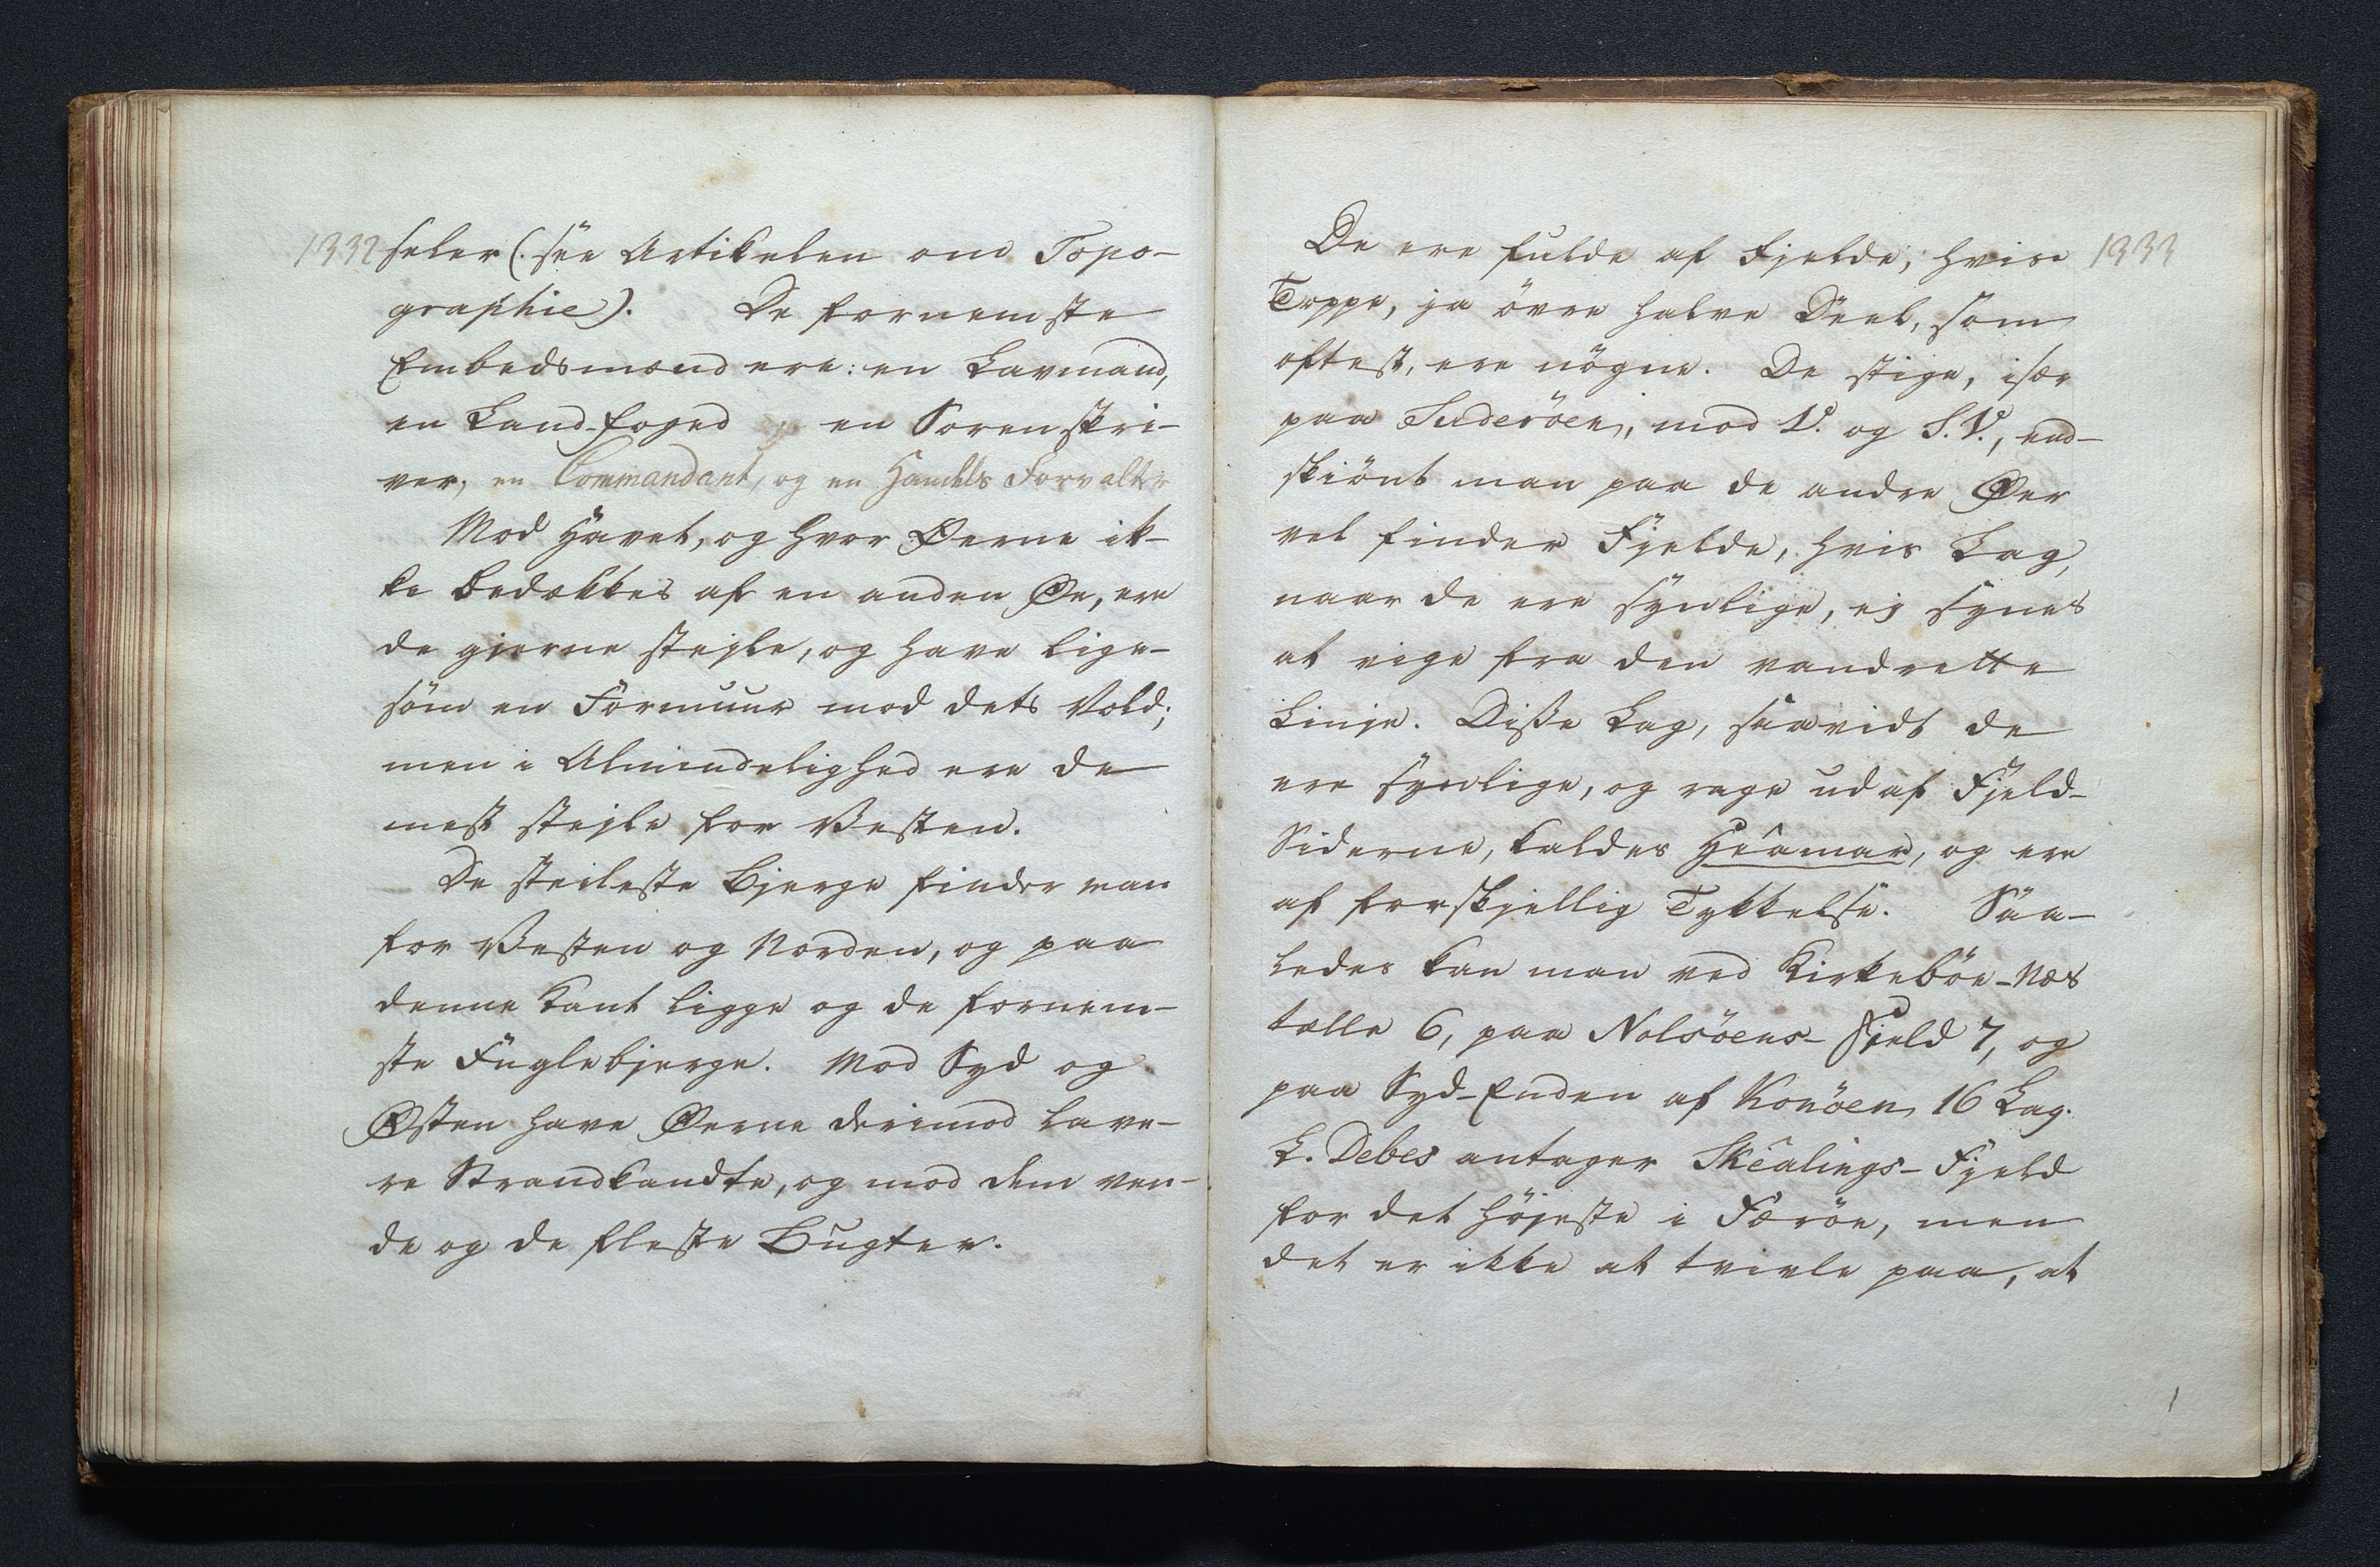 1332
seler (: see Artikelen om Topo-
graphie). De fornemste
Embedsmænd ere: en Lavmand,
en Land-foged en Sorenskri-
ver, en Commandant, og en Handels Forvalter
Mod Havet, og hvor Øerne ik-
ke bedækkes af en anden Øe, ere
de gjerne stejle, og have lige-
som en Formuur mod dets Vold;
men i Almindelighed ere de
mest stejle for Vesten.
De steileste Bjerge finder man
for Vesten og Norden, og paa
denne Kant ligge og de fornem-
ste Fuglebjerge. Mod Syd og
Østen have Øerne derimod lave-
re Strandkandte, og mod dem ven-
de og de fleste Bugter.
1333
De ere fulde af Fjelde, hvis
Toppe, ja øvre halve Deel, som
oftest, ere nøgne. De stige, især
paa Suderöen, mod V. og S.V., end-
skiönt man paa de andre Øer
vel finder Fjelde, hvis Lag,
naar de ere synlige, ej synes
at vige fra den vandrette
Linje. Disse Lag, saavidt de
ere synlige, og rage ud af Fjeld-
Siderne, kaldes Heâmar, og ere
af forskjellig Tykkelse. Saa-
ledes kan man ved Kirkeböe-Næs
tælle 6, paa Nolsöens-Fjeld 7, og
paa Syd-Enden af Konöen 16 Lag.
L. Debes antager Skêalings-Fjeld
for det höjeste i Færöe, men
det er ikke at tvivle paa, at